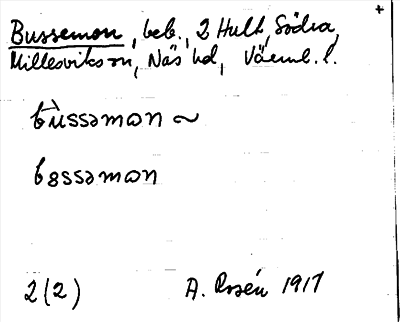 +
Bussemon, beb., 2 Hult, Södra,
Millesviks sn, Näs hd, Värml. l.
bùssəmɷn ~
bɞssəmɷn
2(2) A. Rosén 1917